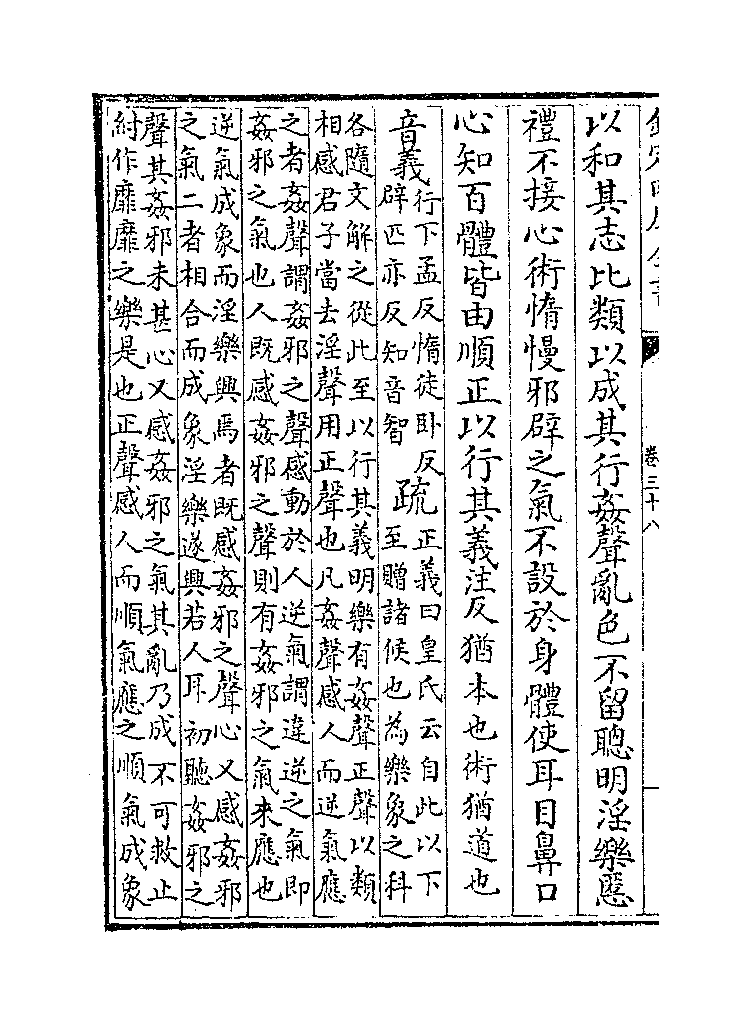 欽定四庫全書
卷三十八
以和其志比類以成其行姦聲亂色不留聰明淫樂慝
禮不接心術惰慢邪辟之氣不設於身體使耳目鼻口
心知百體皆由順正以行其義注反猶本也術猶道也
音義行下孟反惰徒卧反
辟匹亦反知音智
疏正義曰皇氏云自此以下
至贈諸候也為樂象之科
各隨文解之從此至以行其義明樂有姦聲正聲以類
相感君子當去淫聲用正聲也凡姦聲感人而逆氣應
之者姦聲謂姦邪之聲感動於人逆氣謂違逆之氣即
姦邪之氣也人既感姦邪之聲則有姦邪之氣来應也
逆氣成象而淫樂興焉者既感姦邪之聲心又感姦邪
之氣二者相合而成象淫樂遂興若人耳初聽姦邪之
聲其姦邪未甚心又感姦邪之氣其亂乃成不可救止
紂作靡靡之樂是也正聲感人而順氣應之順氣成象